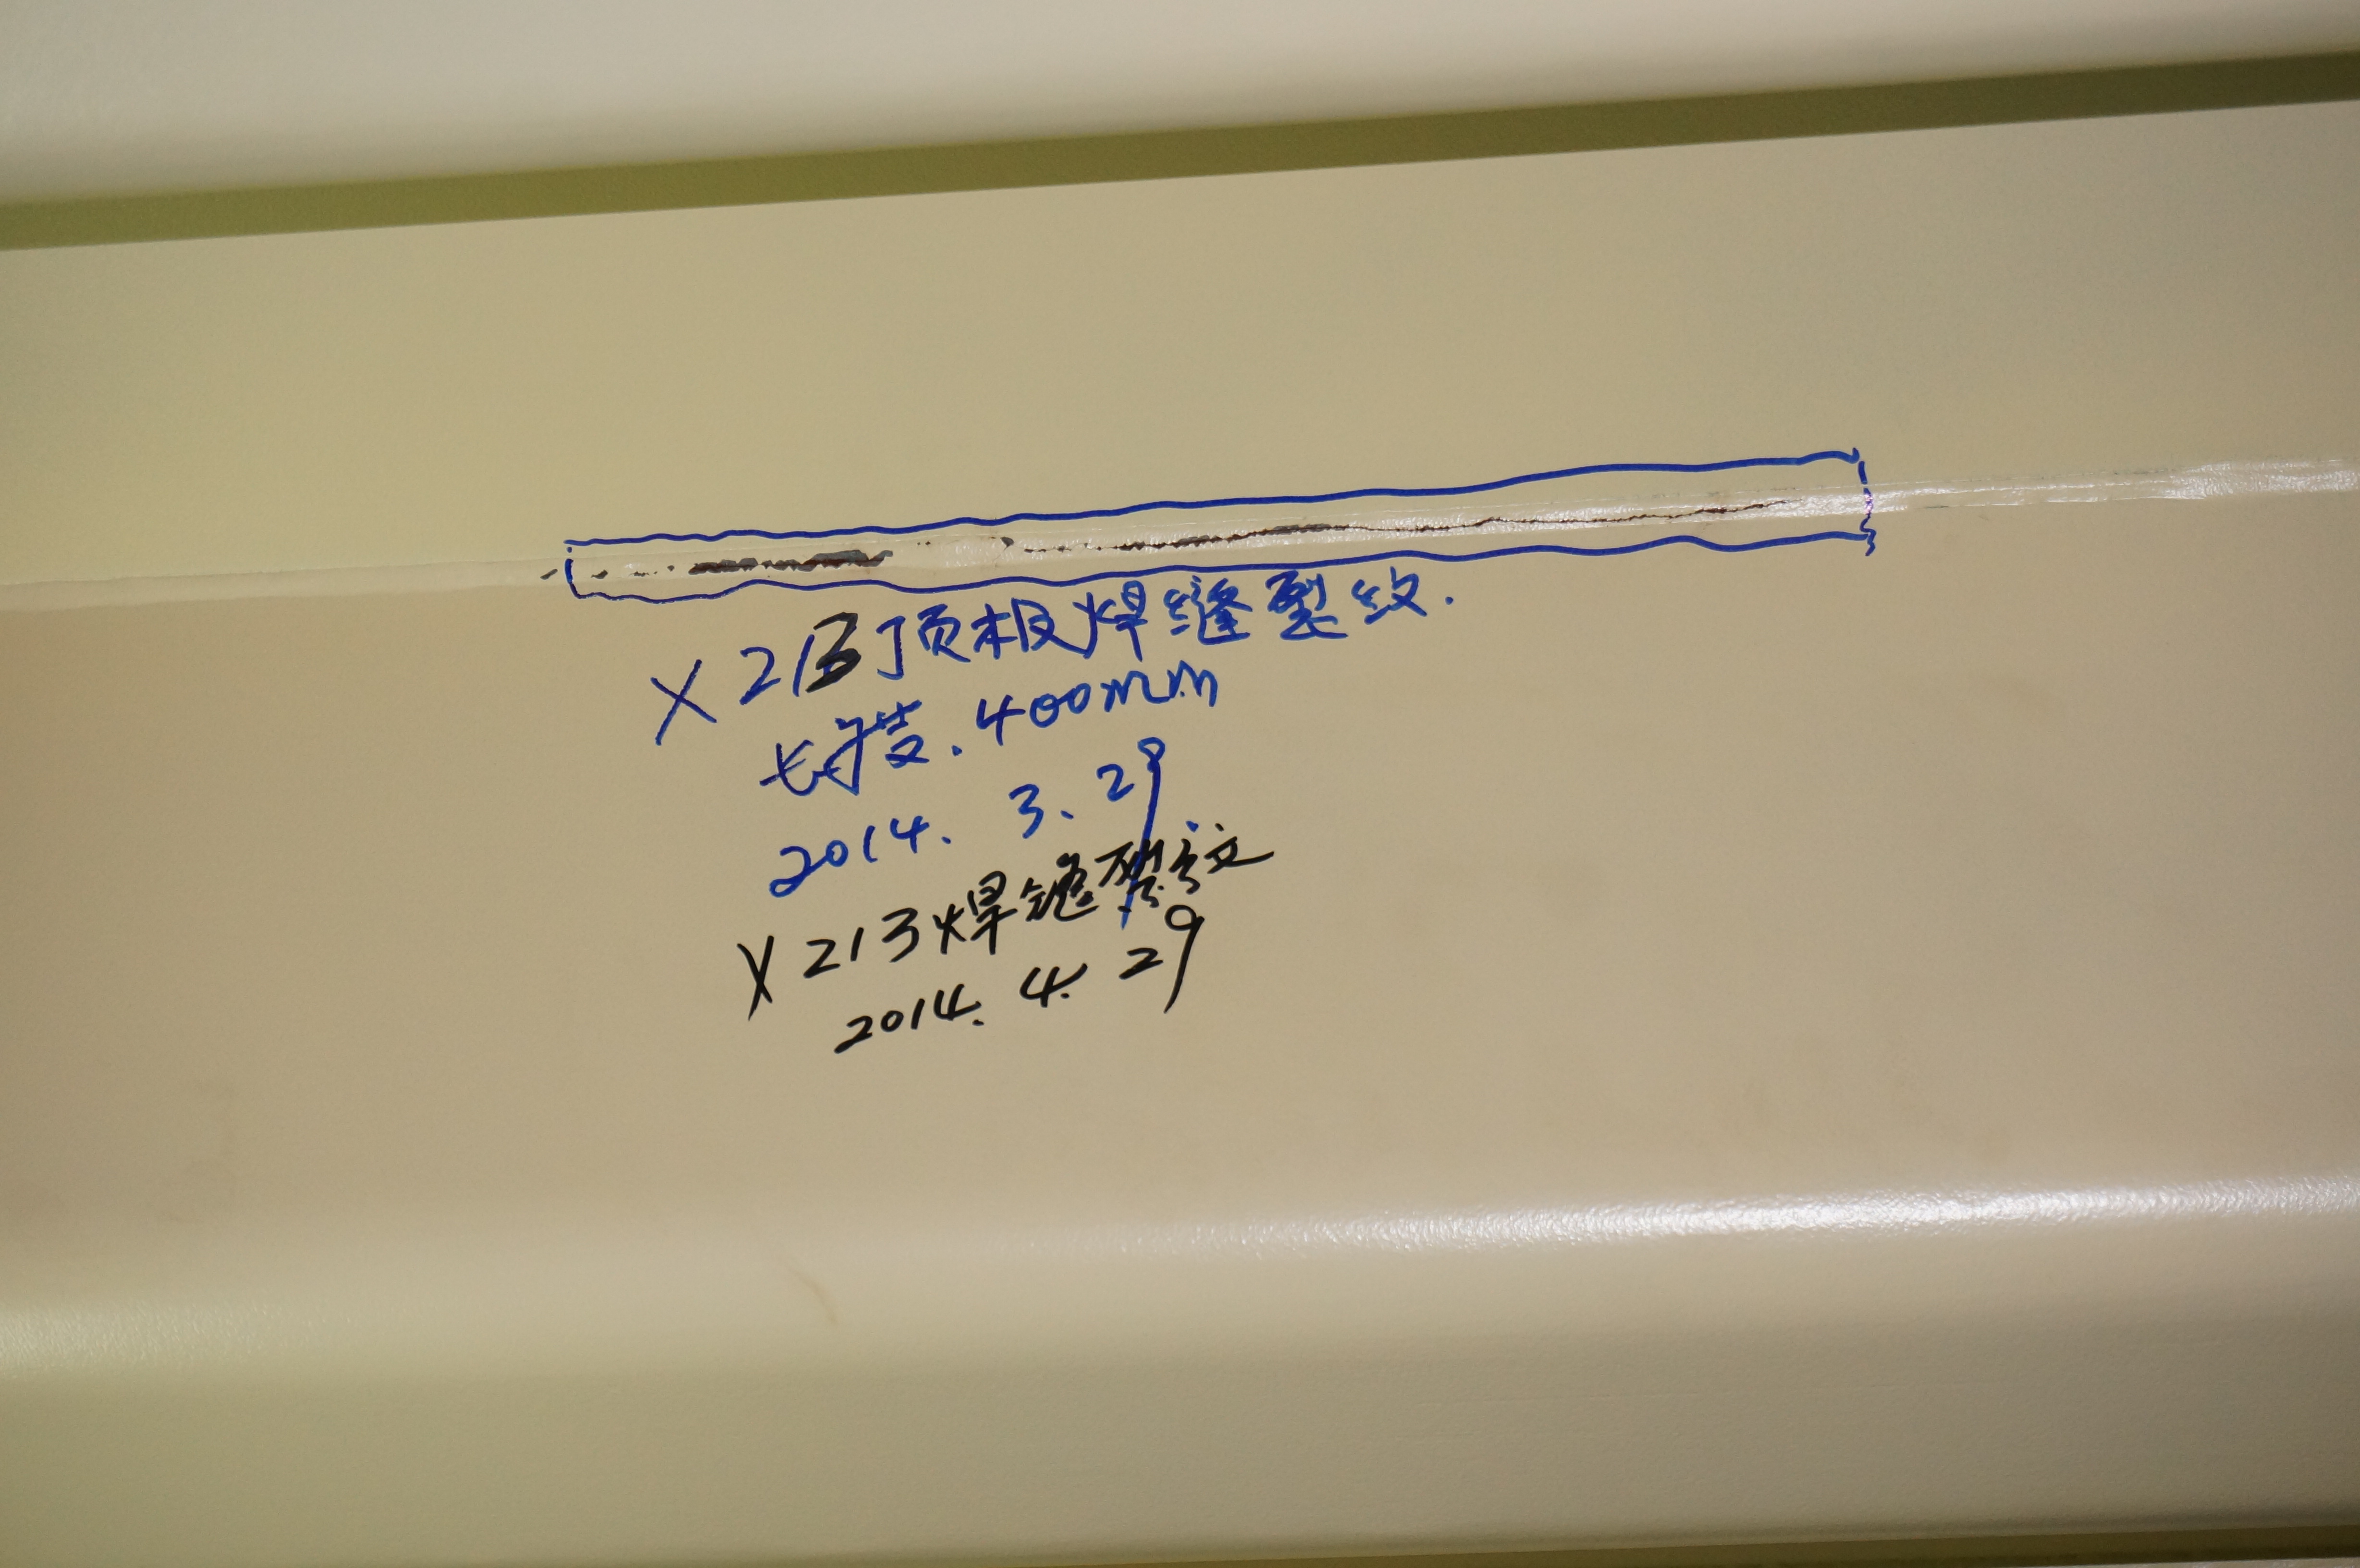 X213顶板焊缝裂纹.
长度.400mm
2014. 3. 29
X213焊缝裂纹
2014. 4. 29